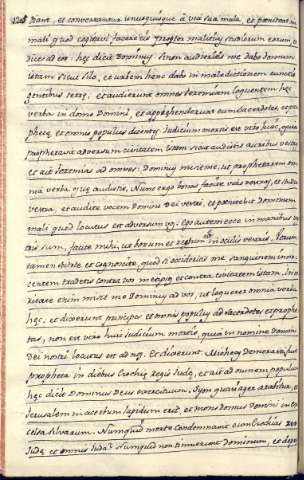 diant, et convertatur unusquisque à via sua mala, et pœniteat me
mali quod cogitavi facere eis propter malitias studiorum eorum et
dices ad eos: hæc dicit Dominus si non audieritis me dabo domum
istam sicut Silo, et urbem hanc dabo in maledictionem cunctis
gentibus terræ, et audierunt omnes Ieremiam loquentem hæc
verba in domo Domini, et apprehenderunt eum sacerdotes, et pro
phetæ, et omnis populus dicens, Iudicium mortis est viro huic, quia
prophetavit adversum civitatem istam sicut audistis auribus vestris
et ait Ieremias ad omnes: Dominus misit me, ut prophetarem om
nia verba quæ audistis, Nunc ergo bonas facite vias vestras, et studia
vestra, et audite vocem Domini Dei vestri, et pœnitebit Dominum
mali quod locutus est adversum vos. Ego autem ecce in manibus ves
tris sum, facite mihi, ut bonum et rectum est in oculis vestris, Verum
tamen scitote et cognoscite, quod si occideritis me sanguinem inno
centem tradetis contra vos metipsos et contra civitatem istam. In ve
ritate enim misit me Dominus ad vos, ut loquerer omnia verba
hæc, et dixerunt principes et omnis populus ad sacerdotes et prophe
tas, non est viro huic iudicium mortis, quia in nomine Domini
Dei nostri locutus est ad nos. Et dixerunt Micheas de Morasthi, fuit
propheta in diebus Ezechiæ regis Iudæ, et ait ad omnem populum
hæc dicit Dominus Deus exercituum. Syon quasi ager arabitur, et
Ierusalem in acervum lapidum erit, et mons domus Domini in ex
celsa silvarum. Numquid morte condemnavit eum Ezechias rex
Iudæ et omnis Iuda? Numquid non timuerunt Dominum, et depre